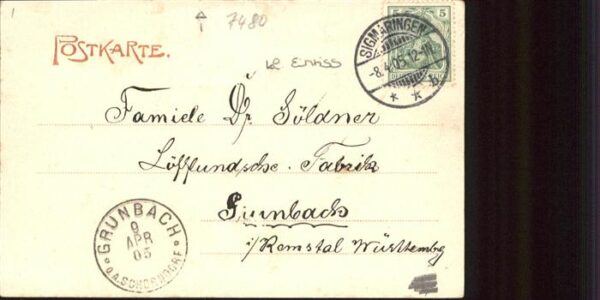 1
7480
POSTKARTE.
5 5
SIGMARINGEN
-8.4.05.12-1N.
* * b
Familie Dr. Söldner
Löfflundsche. Fabrik
Grunbach
i/Remstal Württembg
GRUNBACH
9
APR
05
O.A. SCHORNDORF